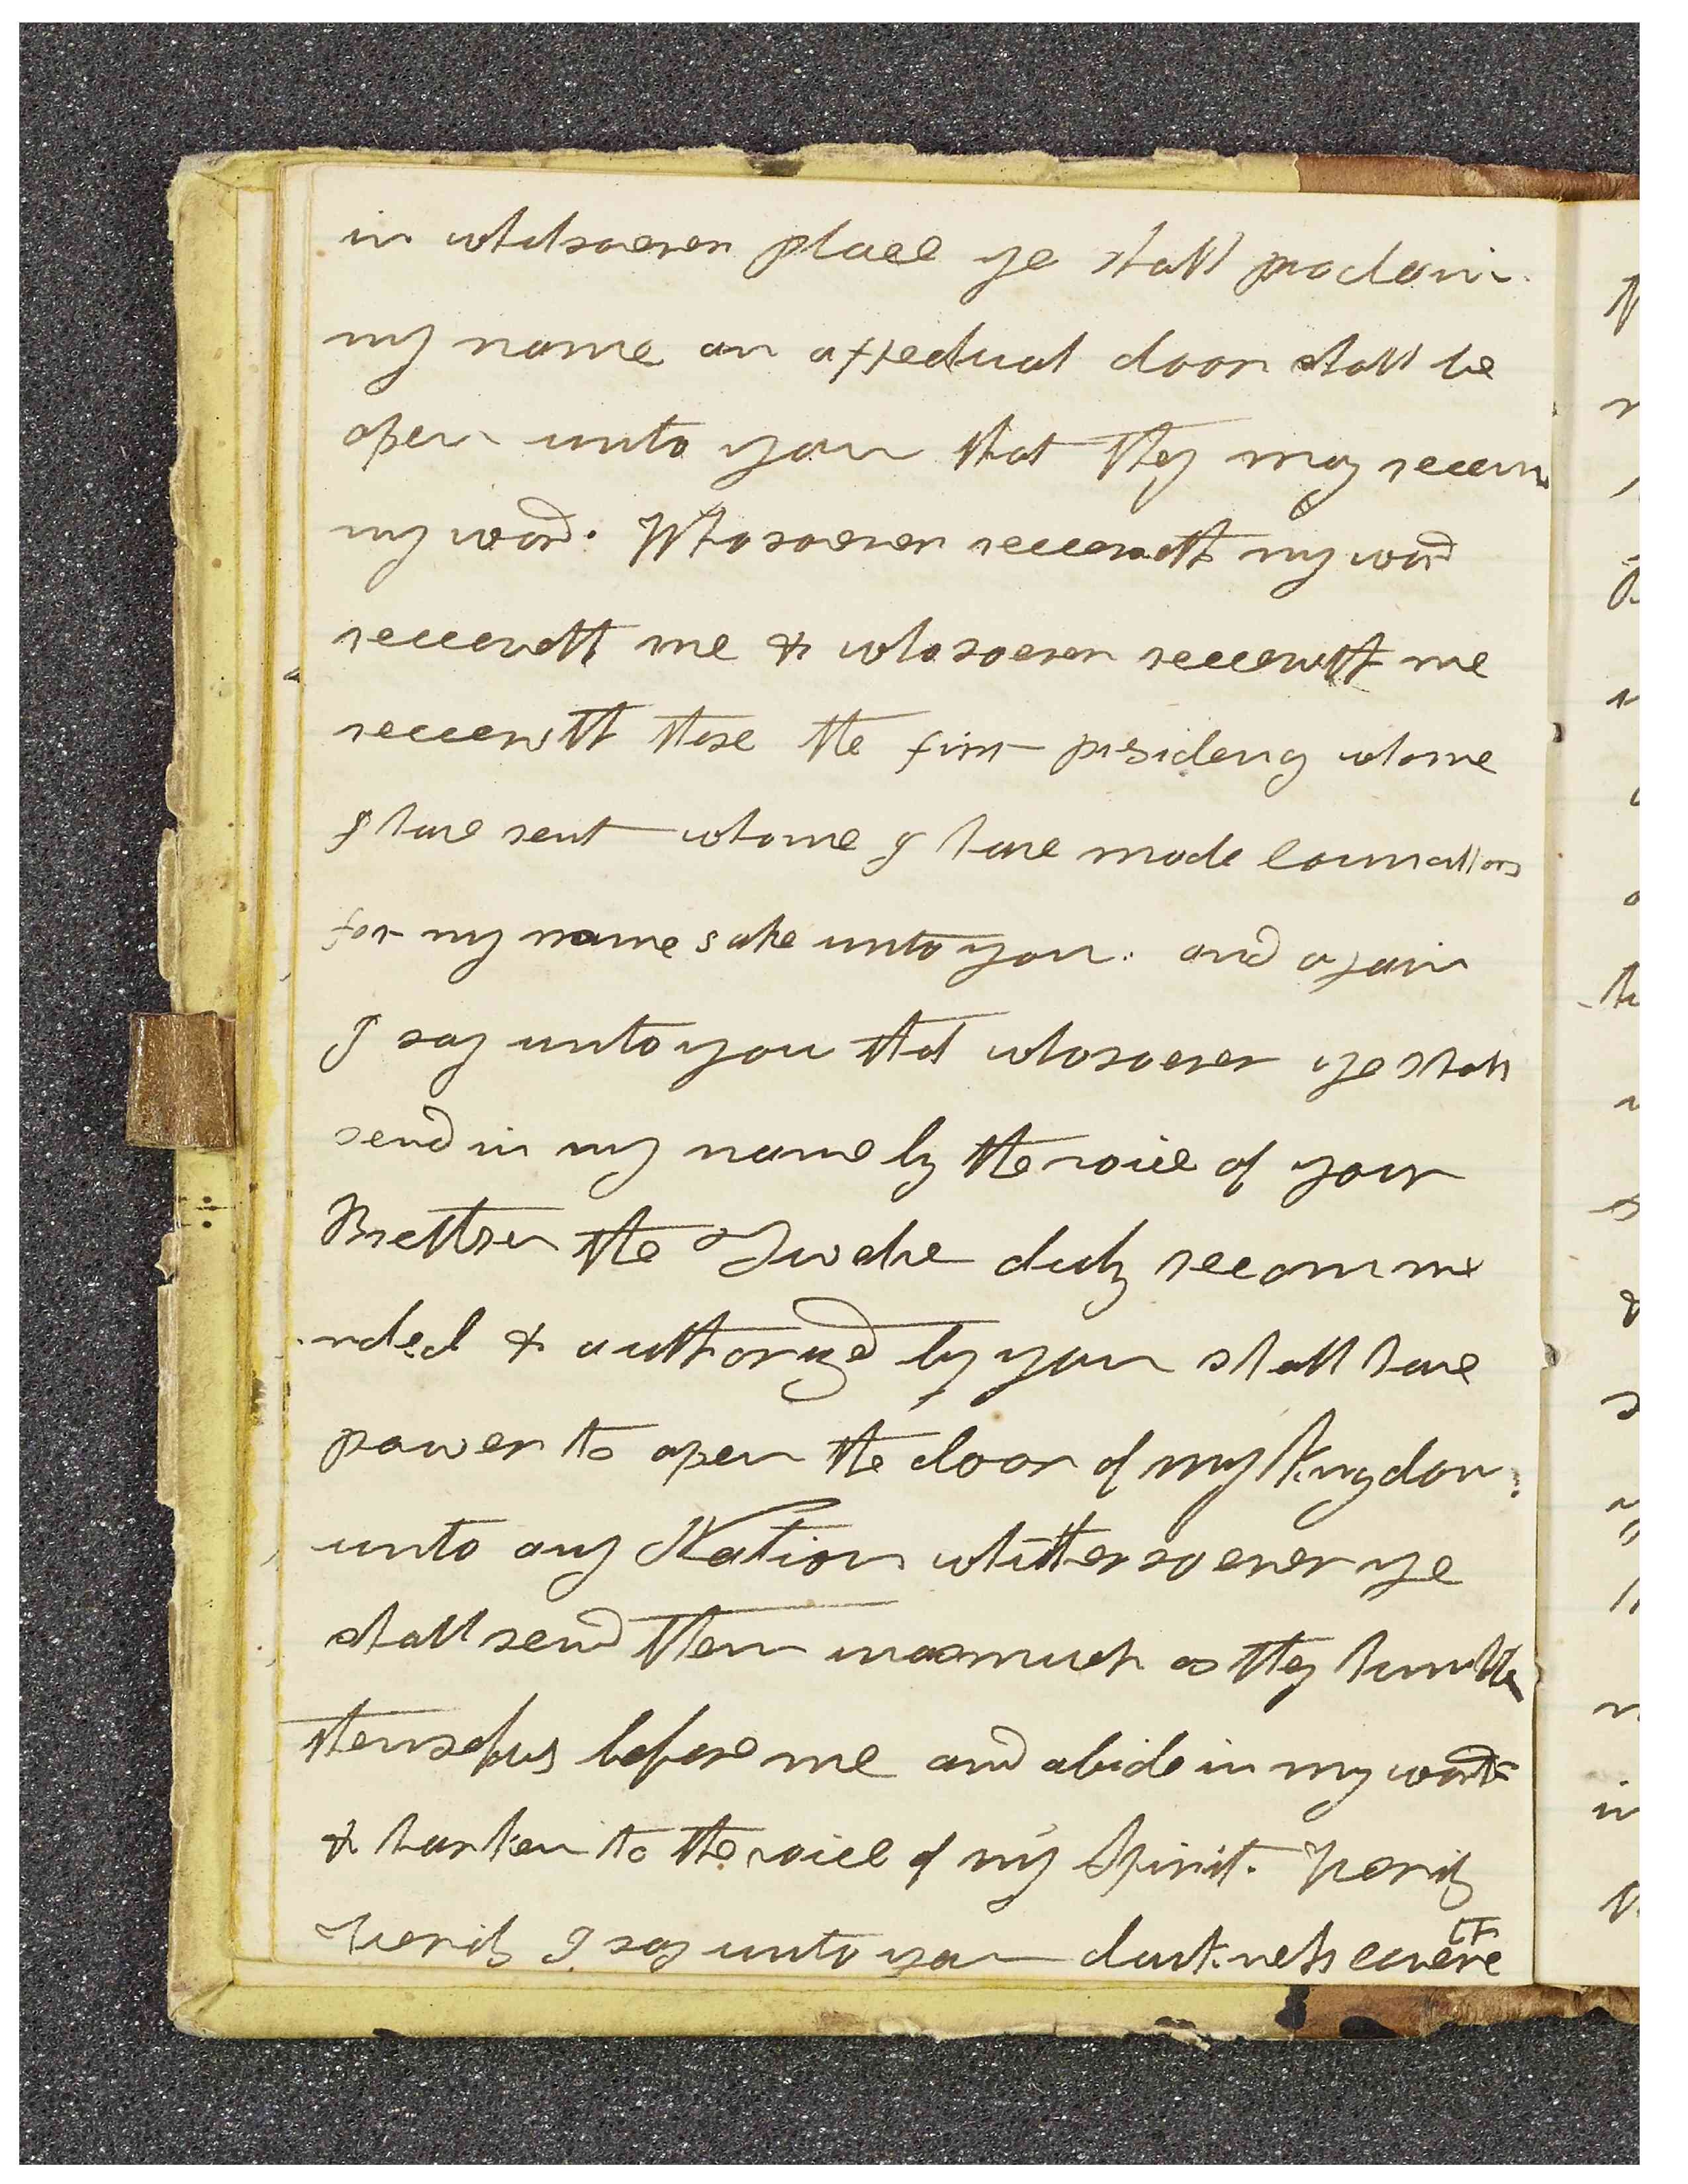 in whatsoever place ye shall proclaim
my name an affectual door shall be
open unto you that they may receive
my word. Whosoever receeveth my word
receeveth me & whosoever receeveth me
receeveth those the first presidency whome
I have sent whome I have made councallors
for my name sake unto you. and again
I say unto you that whosoever ye shall
send in my name by the voice of your
Brethren the Twelve duly recomme
nded & authorized by you shall have
power to open the door of my kingdom
unto any Nation whithersoever ye
shall send them inasmuch as they humble
themselves before me and abide in my word
& harken to the voice of my Spirit. Verily
Verily I say unto you darkness covereth